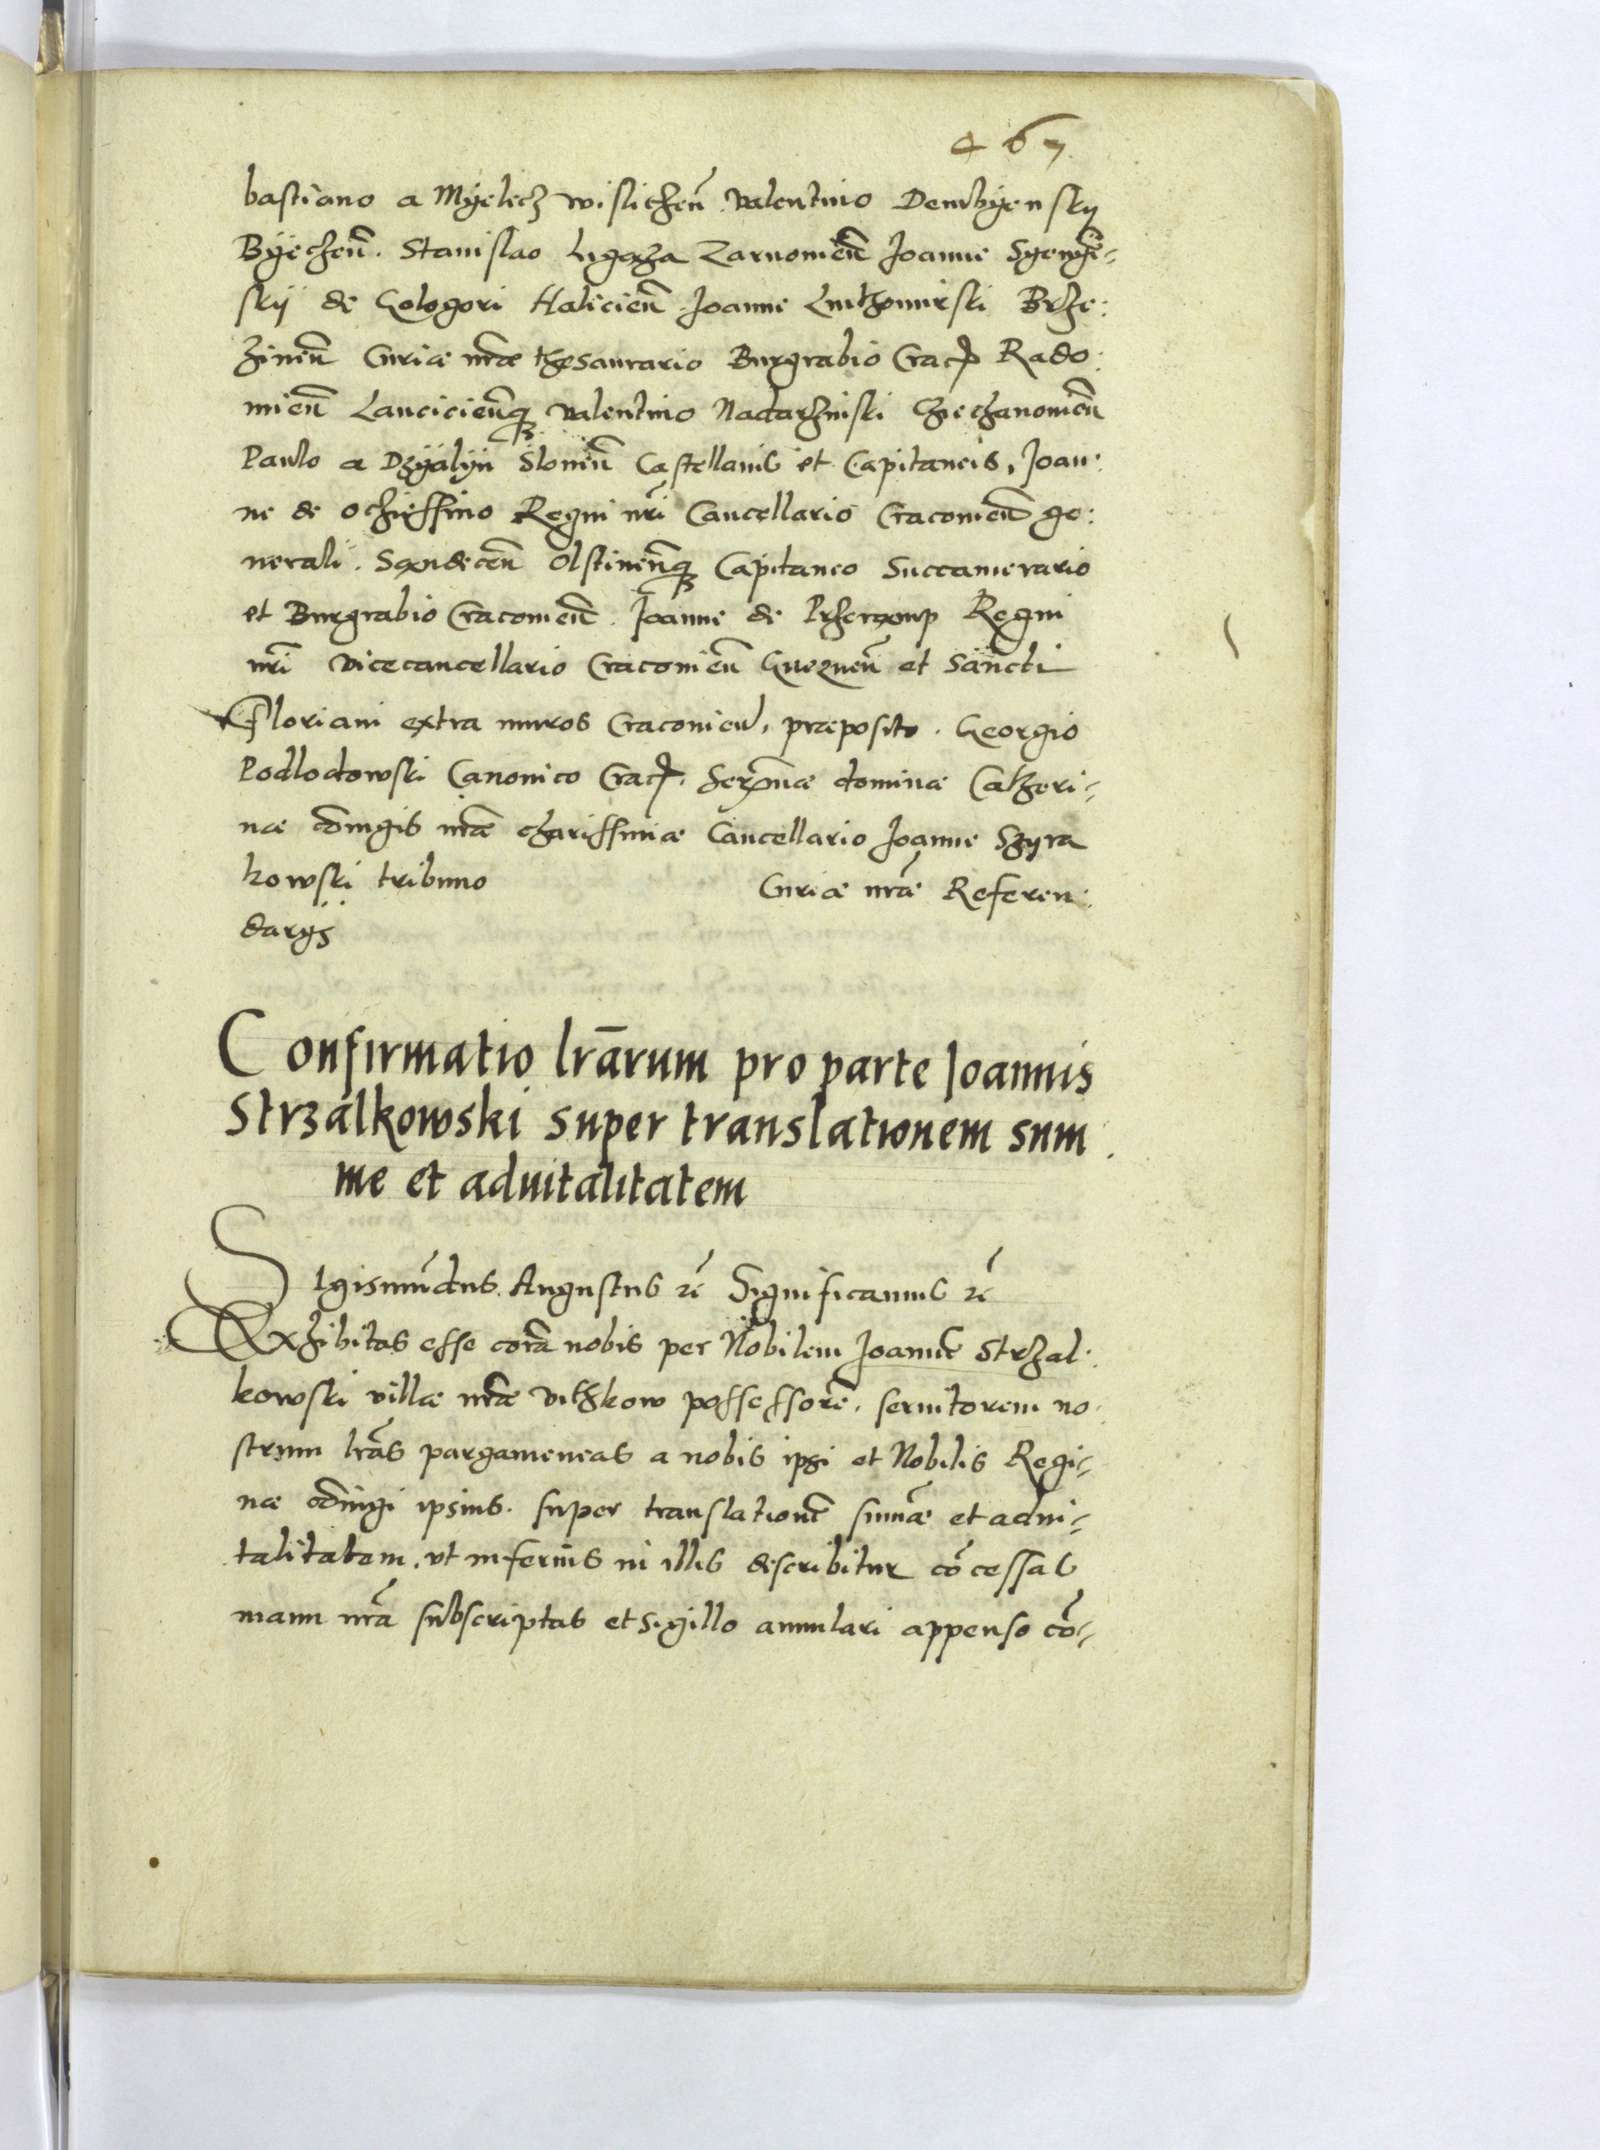 467
bastiano a Myelecz wislichen̄ valentino Dembyensky
Byechen̄. Stanislao Ligęza Zarnouien̄ Joanne Syenyē-
skÿ de Gologori Halicien̄ Joanne Luthomirski Brze:
zinen̄ Curiæ nr̄æ thesaurario Burgrabio Crac Rado:
mien̄ Lancicien̄q valentino Nadarzinski Czechanouien̄
Paulo a Dzyalÿn Slonen̄ Castellanis et Capitaneis, Joan:
ne de Ocziessino Regni nr̄i Cancellario Cracouien̄ ge:
nerali. Sandecen̄ Olstinen̄q Capitaneo Succamerario
et Burgrabio Cracouien̄. Joanne de Przerąmp Regni
nr̄i vicecancellario Cracouien̄ Gneznen̄ et Sancti
Floriani extra muros Cracouien̄, præposito. Georgio
Podlodowski Canonico Crac. Serm̄æ dominæ Catheri-
næ cōiugis nr̄æ charissimæ Cancellario Joanne Szyra
kowski tribuno Curiæ nr̄æ Referen:
darijs
Confirmatio lrārum pro parte Joannis
Strzalkowski super translationem sum
me et aduitalitatem
Sigismūdus Augustus rc̄ Significamus rc̄
Exhibitas esse corā nobis per Nobilem Joannē Strzal:
kowski villæ nr̄æ vithkow possessorē, seruitorem no:
strum lrās pargameneas a nobis ipsi et Nobilis Regi-
næ cōiugi ipsius. super translationē summæ et adui-
talitatem, vt inferius in illis describitur cōcessas
manu nr̄a subscriptas et sigillo annulari appenso cō-